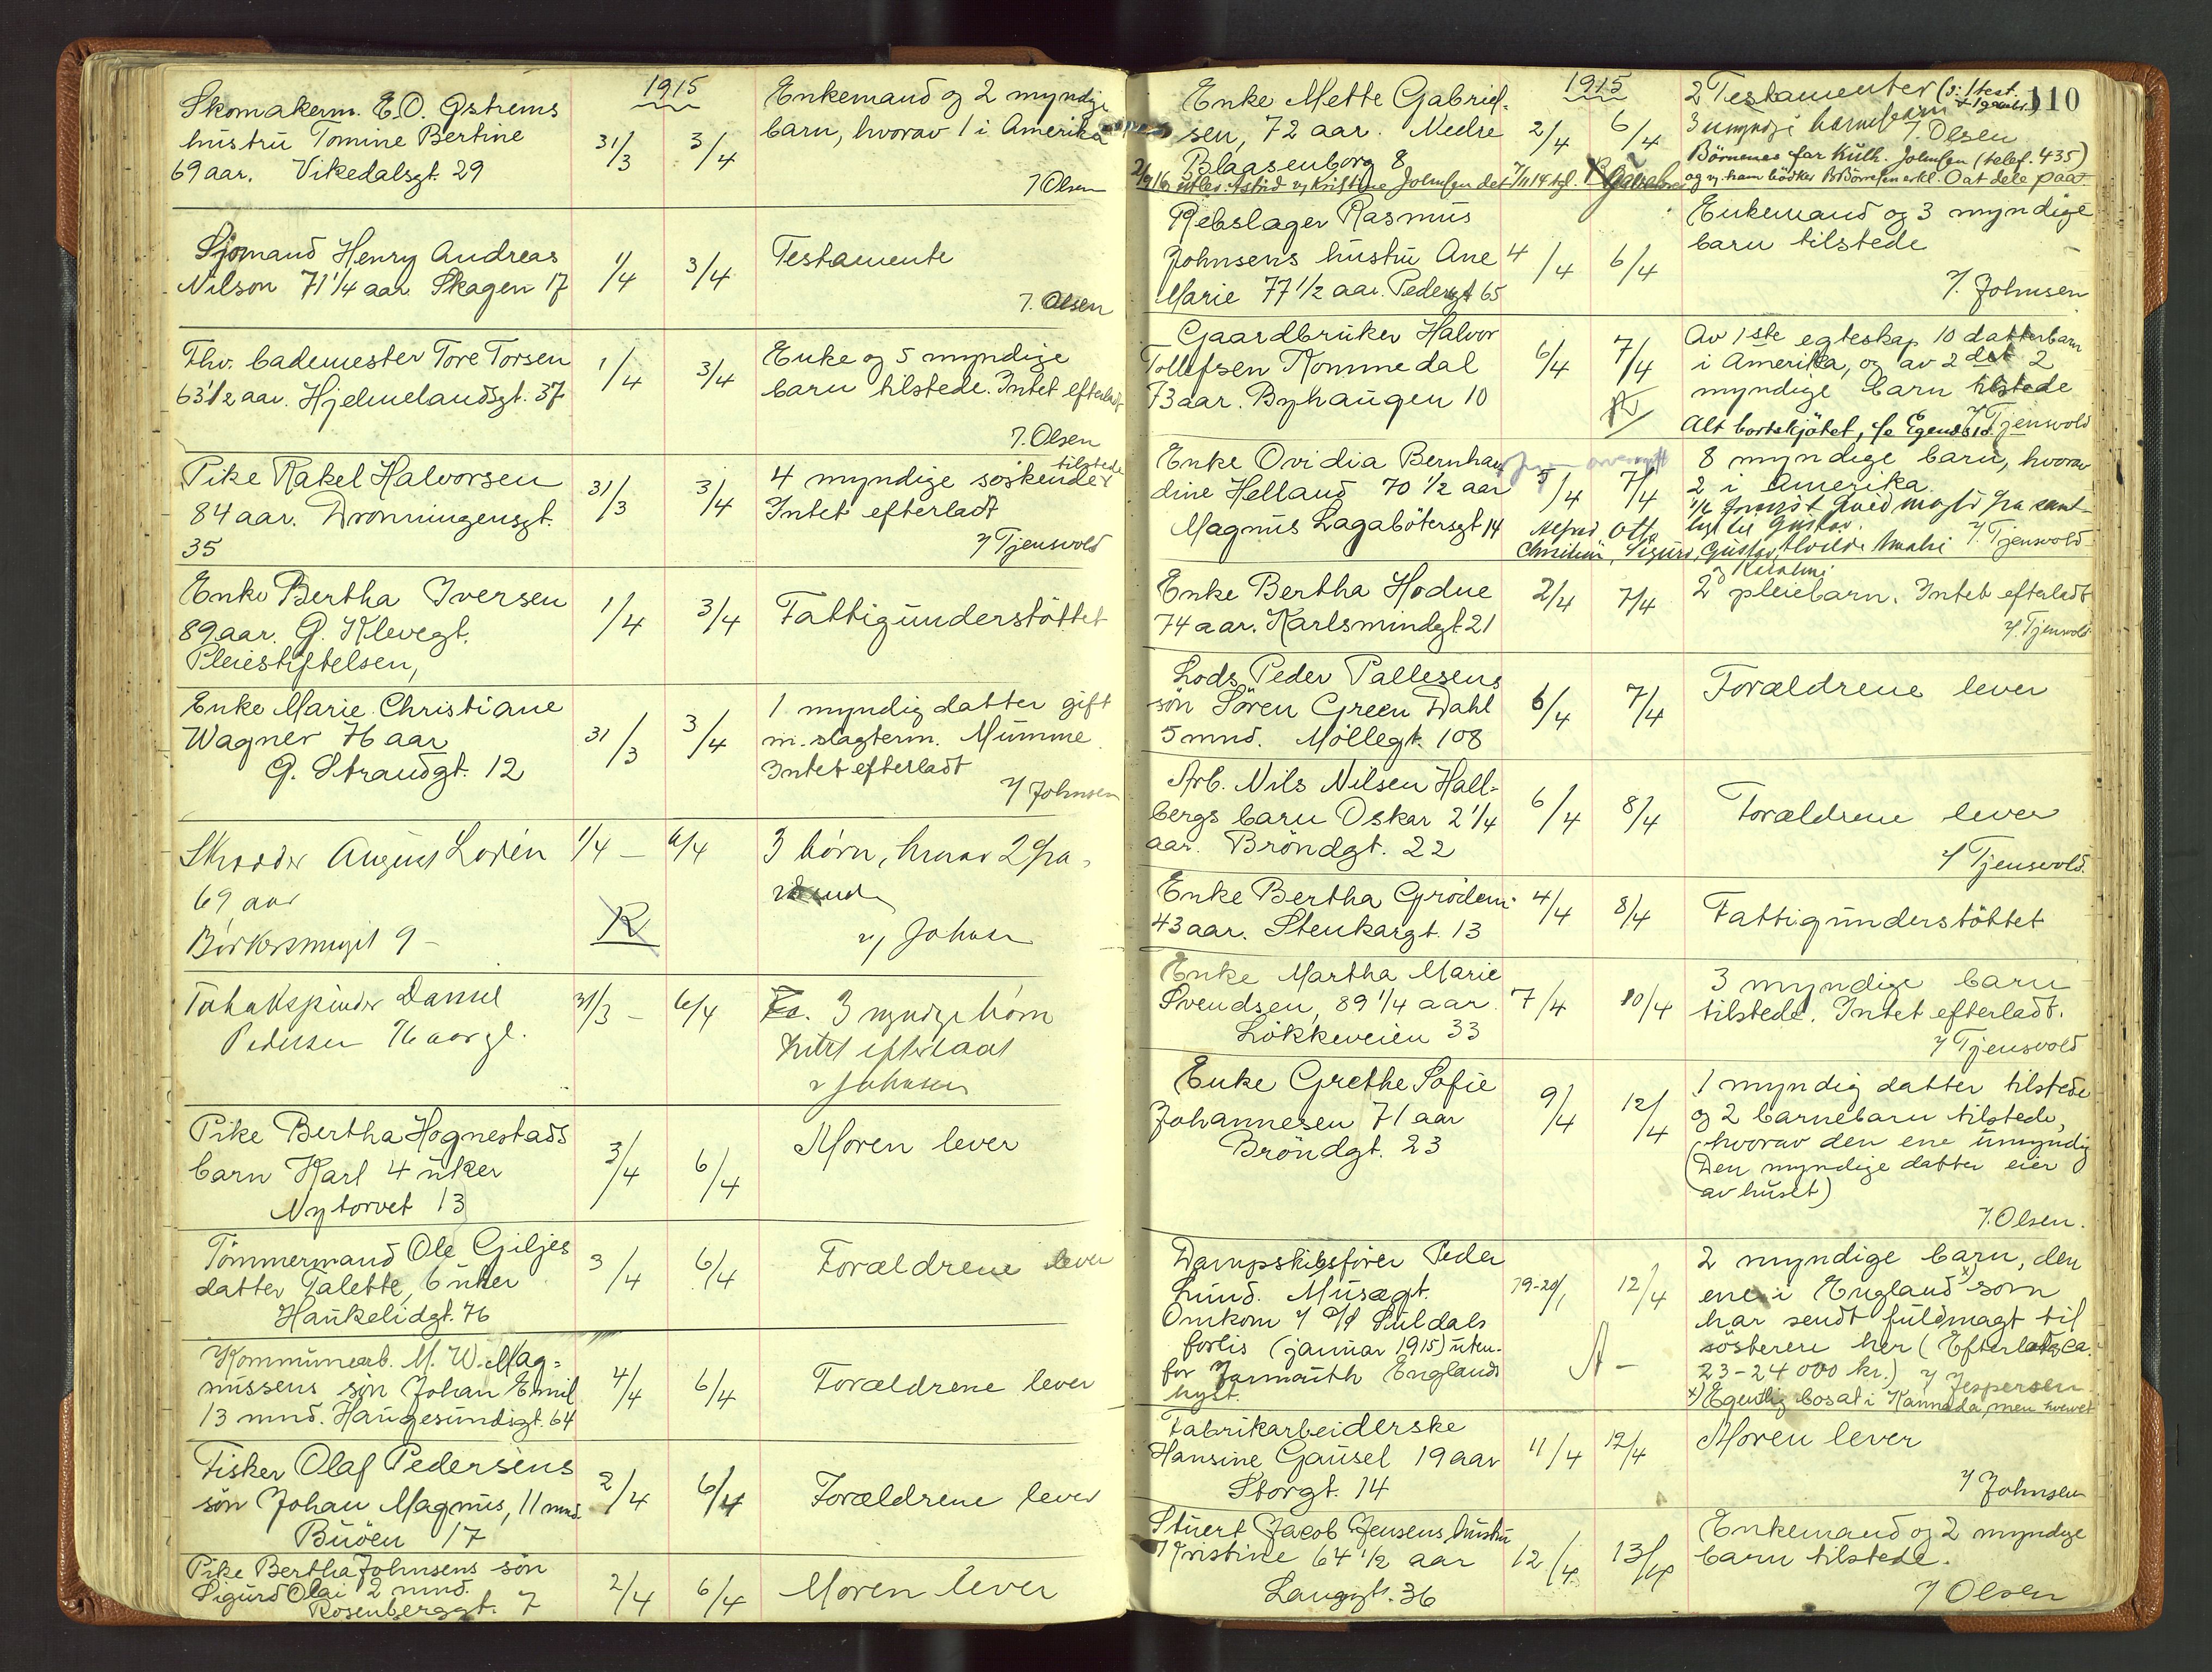 1915
Skomakerm. E.O. Østrems
hustru Tomine Bertine
69 aar. Vikedalsgt. 29
31/3
3/4
Enkemand og 2 myndige
barn, hvorav 1 i Amerika
Olsen
Sjømand Henry Andreas
Nilson 71 1/4 aar. Skagen 17
1/4
3/4
Testamente
Olsen
Fhv. bademester Tore Torsen
63 1/2 aar. Hjelmelandsgt. 37
1/4
3/4
Enke og 5 myndige
barn tilstede. Intet efterladt
Olsen
Pike Rakel Halvorsen
84 aar. Dronningensgt.
35
31/3
3/4
4 myndige søskende tilstede
Intet efterladt
Tjensvold
Enke Bertha Iversen
89 aar. G. Klevegt.
Pleiestiftelsen,
1/4
3/4
Fattigunderstøttet
Enke Marie Christiane
Wagner 76 aar
G. Strandgt. 12
31/3
3/4
1 myndig datter gift
m. slagterm. Mumme
Intet efterladt
Johnsen
August Lorén
69 aar
9 -
1/4 -
6/4
R
3 børn, hvorav 2 fra-
Johnsen
Tobakspinder Daniel
Pedersen 76 aar gl.
31/3 -
6/4
3 myndige børn
Intet efterladt
Johnsen
Pike Bertha Hognestads
barn Karl 4 uker
Nytorvet 13
3/4
6/4
Moren lever
Tømmermand Ole Giljes
datter Talette, 6 uker
Haukelidgt. 76
3/4
6/4
Forældrene lever
Kommunearb. M. W. Mag-
nussens søn Johan Emil
13 mnd. Haugesundsgt. 64
4/4
6/4
Forældrene lever
Fisker Olaf Pedersens
søn Johan Magnus, 11 mnd.
Buøen 17
2/4
6/4
Forældrene lever
Pike Bertha Johnsens søn
Sigurd Olai 2 mnd.
Rosenberggt. 7
2/4
6/4
Moren lever
1915
110
Enke Mette Gabriel-
sen, 72 aar. Nedre
Blaasenborg 8
2/4
6/4
2 Testamenter (o: 1 test.
3 umyndige barnebarn
Olsen
Børnenes far Kulh. Johnsen (telef. 435)
Astrid og Kristine Johnsen det 7/11 14
Rebslager Rasmus
Johnsens hustru Ane
Marie 77 1/2 aar. Pedersgt 65
4/4
6/4
Enkemand og 3 myndige
barn tilstede
Johnsen
Gaardbruker Halvor
Tollefsen Kommedal
73 aar. Byhaugen 10
6/4
7/4
Av 1ste egteskap 10 datterbarn
i Amerika, og av 2det 2
myndige barn tilstede
Tjensvold
Alt bortskjøtet,
Enke Ovidia Bernhar-
dine Helland 70 1/2 aar
Magnus Lagabøtersgt 14
5/4
7/4
8 myndige barn, hvorav
2 i Amerika.
Gustav.
Tjensvold
Otto
Sigurd, Gustav,
Enke Bertha Hodne
74 aar. Karlsmindegt 21
2/4
7/4
2 pleiebarn. Intet efterladt
Tjensvold
Lods Peder Pallesens
søn Søren Green Dahl
5 mnd. Møllegt. 108
6/4
7/4
Forældrene lever
Arb. Nils Nilsen Hall-
bergs barn Oskar 2 1/4
aar. Brøndgt. 22
6/4
8/4
Forældrene lever
Tjensvold.
Enke Bertha Grødem
43 aar. Stenkargt. 13
4/4
8/4
Fattigunderstøttet
Enke Martha Marie
Svendsen, 89 1/4 aar
Løkkeveien 33
7/4
10/4
3 myndige barn
tilstede. Intet efterladt.
Tjensvold
Enke Grethe Sofie
Johannesen 71 aar
Brøndgt. 23
9/4
12/4
1 myndig datter tilstede
og 2 barnebarn tilstede,
hvorav den ene umyndig
(Den myndige datter eier
av huset)
Olsen.
Dampskibsfører Peder
Lund. Musægt.
Omkom v/ D/S Suldals
forlis (januar 1915) uten-
for Yarmouth Englands
kyst.
19-20/1
12/4
2 myndige barn, den
ene i England x) som
har sendt fuldmagt til
søsteren her (Efterladt ca.
23-24 000 kr.)
Jespersen
x) Egentlig bosat i Kannada, men hvervet
Fabrikarbeiderske
Hansine Gausel 19 aar
Storgt. 14
11/4
12/4
Moren lever
Johnsen
Stuert Jacob Jensens hustru
Kristine 64 1/2 aar
Langgt. 36
12/4
13/4
Enkemand og 2 myndige
barn tilstede.
Olsen